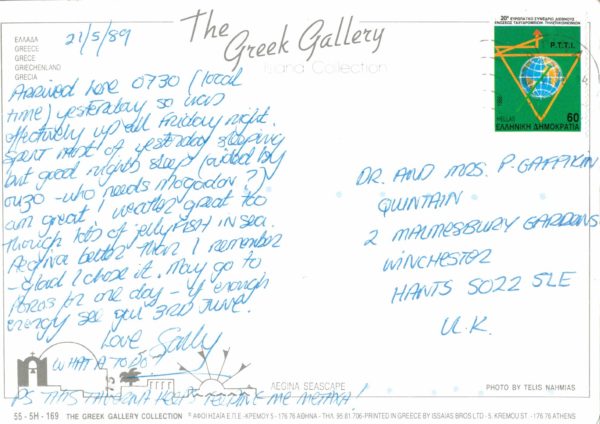 The
Greek Gallery
Island Collection
ΕΛΛΑΔΑ
GREECE
GRECE
GRIECHENLAND
GRECIA
21/5/89
Arrived here 0730 (local
time) yesterday so was
effectively up all Friday night.
Spent most of yesterday sleeping
but good nights sleep (aided by
ouzo - who needs mogadon?)
am great! Weather great too
though lots of jellyfish in sea.
Aegina better than I remember
- glad I chose it. May go to
Poros for one day - if enough
energy see you 3RD June.
Love Sally
WHAT A TO DO!
PS THIS TAVERNA KEEPS ME METAXA!
20° ΕΥΡΩΠΑΪΚΟ ΣΥΝΕΔΡΙΟ ΔΙΕΘΝΟΥΣ
ΕΝΩΣΕΩΣ ΤΑΧΥΔΡΟΜΙΚΩΝ
P.T.T.I.
HELLAS
60
ΕΛΛΗΝΙΚΗ ΔΗΜΟΚΡΑΤΙΑ
DR. AND MRS. P. GAFFIKIN
QUINTAIN
2 MALMESBURY GARDENS
WINCHESTER
HANTS SO22 5LE
U.K.
AEGINA SEASCAPE
PHOTO BY TELIS NAHMIAS
55 - 5H - 169 THE GREEK GALLERY COLLECTION © ΑΦΟΙ ΗΣΑΪΑ Ε.Π.Ε - ΚΡΕΜΟΥ 5 - 176 76 ΑΘΗΝΑ - ΤΗΛ. 95.81.706 - PRINTED IN GREECE BY ISSAIAS BROS LTD - 5, KREMOU ST. - 176 76 ATHENS